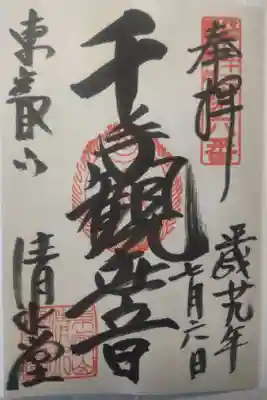 奉拝
平成廿九年
七月六日
千手観世音
東叡山
清水堂